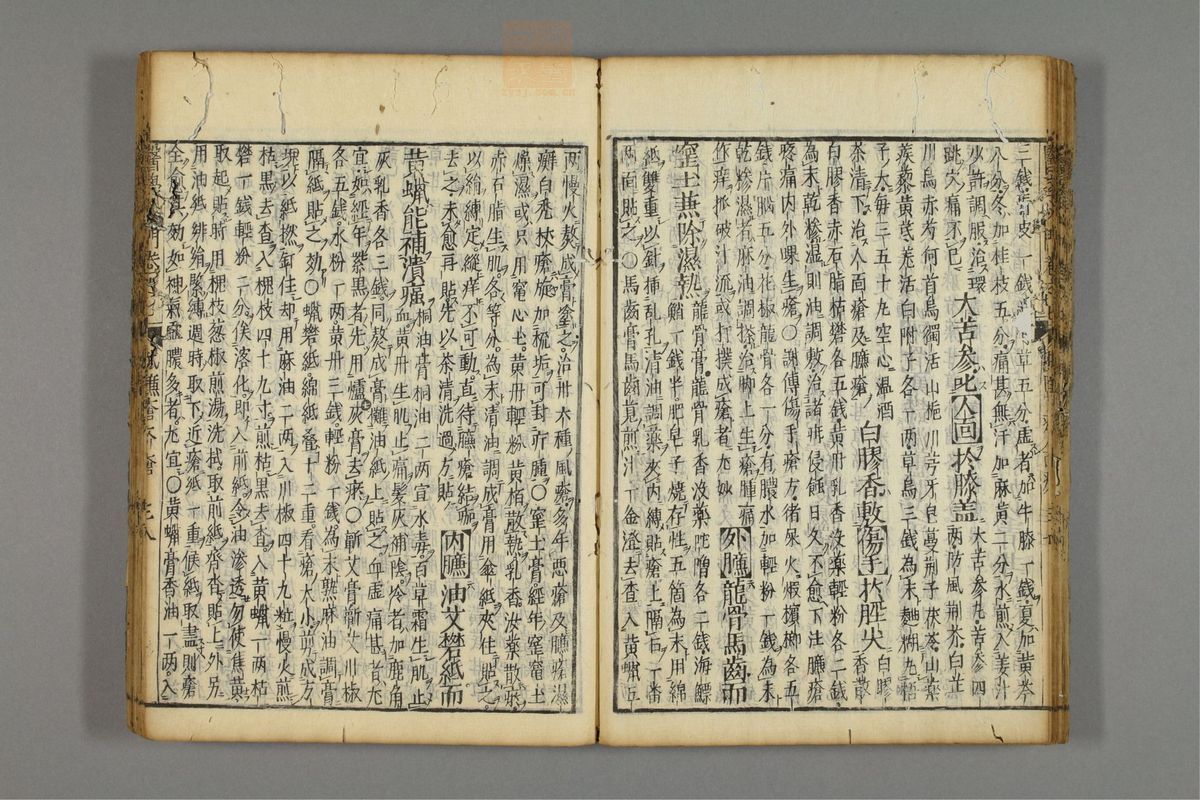 三錢青皮一錢
草五分虛者加牛膝一錢夏加黃芩
八分冬加桂枝五分痛甚無汗加麻黃二分水煎入姜汁
少許調服治環跳穴痛不已
大苦參此人面於膝盖
大苦參丸苦參四兩防風荊芥白芷
川烏赤芍何首烏獨活山梔川芎牙皂蔓荊子茯苓山藥
蒺藜黃芪羌活白附子各一兩草烏三錢為末麵糊丸梧
子大每三五十九空心溫酒茶清下治人面瘡及臁瘡
白膠香敷傷手於脛尖
白膠香散
白膠香赤石脂枯礬各五錢黃丹乳香沒藥輕粉各二錢
為末乾摻濕則油調敷治諸疳侵蝕日久不愈下注臁瘡
疼痛內外踝生瘡〇謝傳傷手瘡方
錢片腦五分花椒龍骨各一分有膿水加輕粉一錢為末
乾摻濕者麻油調搽治脚上生瘡腫痛
作痒抓破汁流或打撲成瘡者尤妙
外臁龍骨馬齒而窰土兼除濕熱
龍骨膏龍骨乳香沒藥陀僧各二錢海鰾
蛸一錢半肥皂子燒存性五箇為末用綿
紙雙重以針揷亂孔清油調藥夾內縛貼瘡上隔日一番
兩面貼之〇馬齒膏馬齒莧煎汁一金澄去查入黃蠟五
兩慢火熬成膏塗之治卅六種風瘡多年惡瘡及臁瘡濕
癬白禿杖瘡旋加梳垢可封丁腫〇窰土膏經年窰竈土
燥濕或只用竈心土黃丹輕粉黃栢散熱乳香沒藥散瘀
赤石脂生肌各等分為末清油調成膏用傘紙夾住貼之
以絹縛定縱痒不可動直待臁瘡結痂
去之未愈再貼先以茶清洗過方貼
內臁油艾礬紙而黃蠟能補潰瘍
桐油膏桐油二兩宣水毒百草霜生肌止
血黃丹生肌止痛髮灰補陰冷者加鹿角
灰乳香各三錢同熬成膏攤油紙上貼之血虛痛甚者尤
宜如經年紫黑者先用爐灰膏去瘀〇蘄艾膏蘄艾川椒
各五錢水粉一兩黃丹三錢輕粉一錢為末熟麻油調膏
隔紙貼之効〇蠟礬紙綿紙疊十二重看瘡大小剪成方
塊以紙撚釘住却用麻油二兩入川椒四十九粒慢火煎
枯黑去查入槐枝四十九寸煎枯黑去查入黃蠟一兩枯
礬一錢輕粉二分俟溶化即入前紙令油滲透勿使焦黃
取起貼時用槐枝葱椒煎湯洗拭取前紙齊沓貼上外另
用油紙緋絹緊縛週時取下近瘡紙一重候紙取盡則瘡
全愈矣効如神氣虛膿多者尤宜〇黃蠟膏香油一兩入